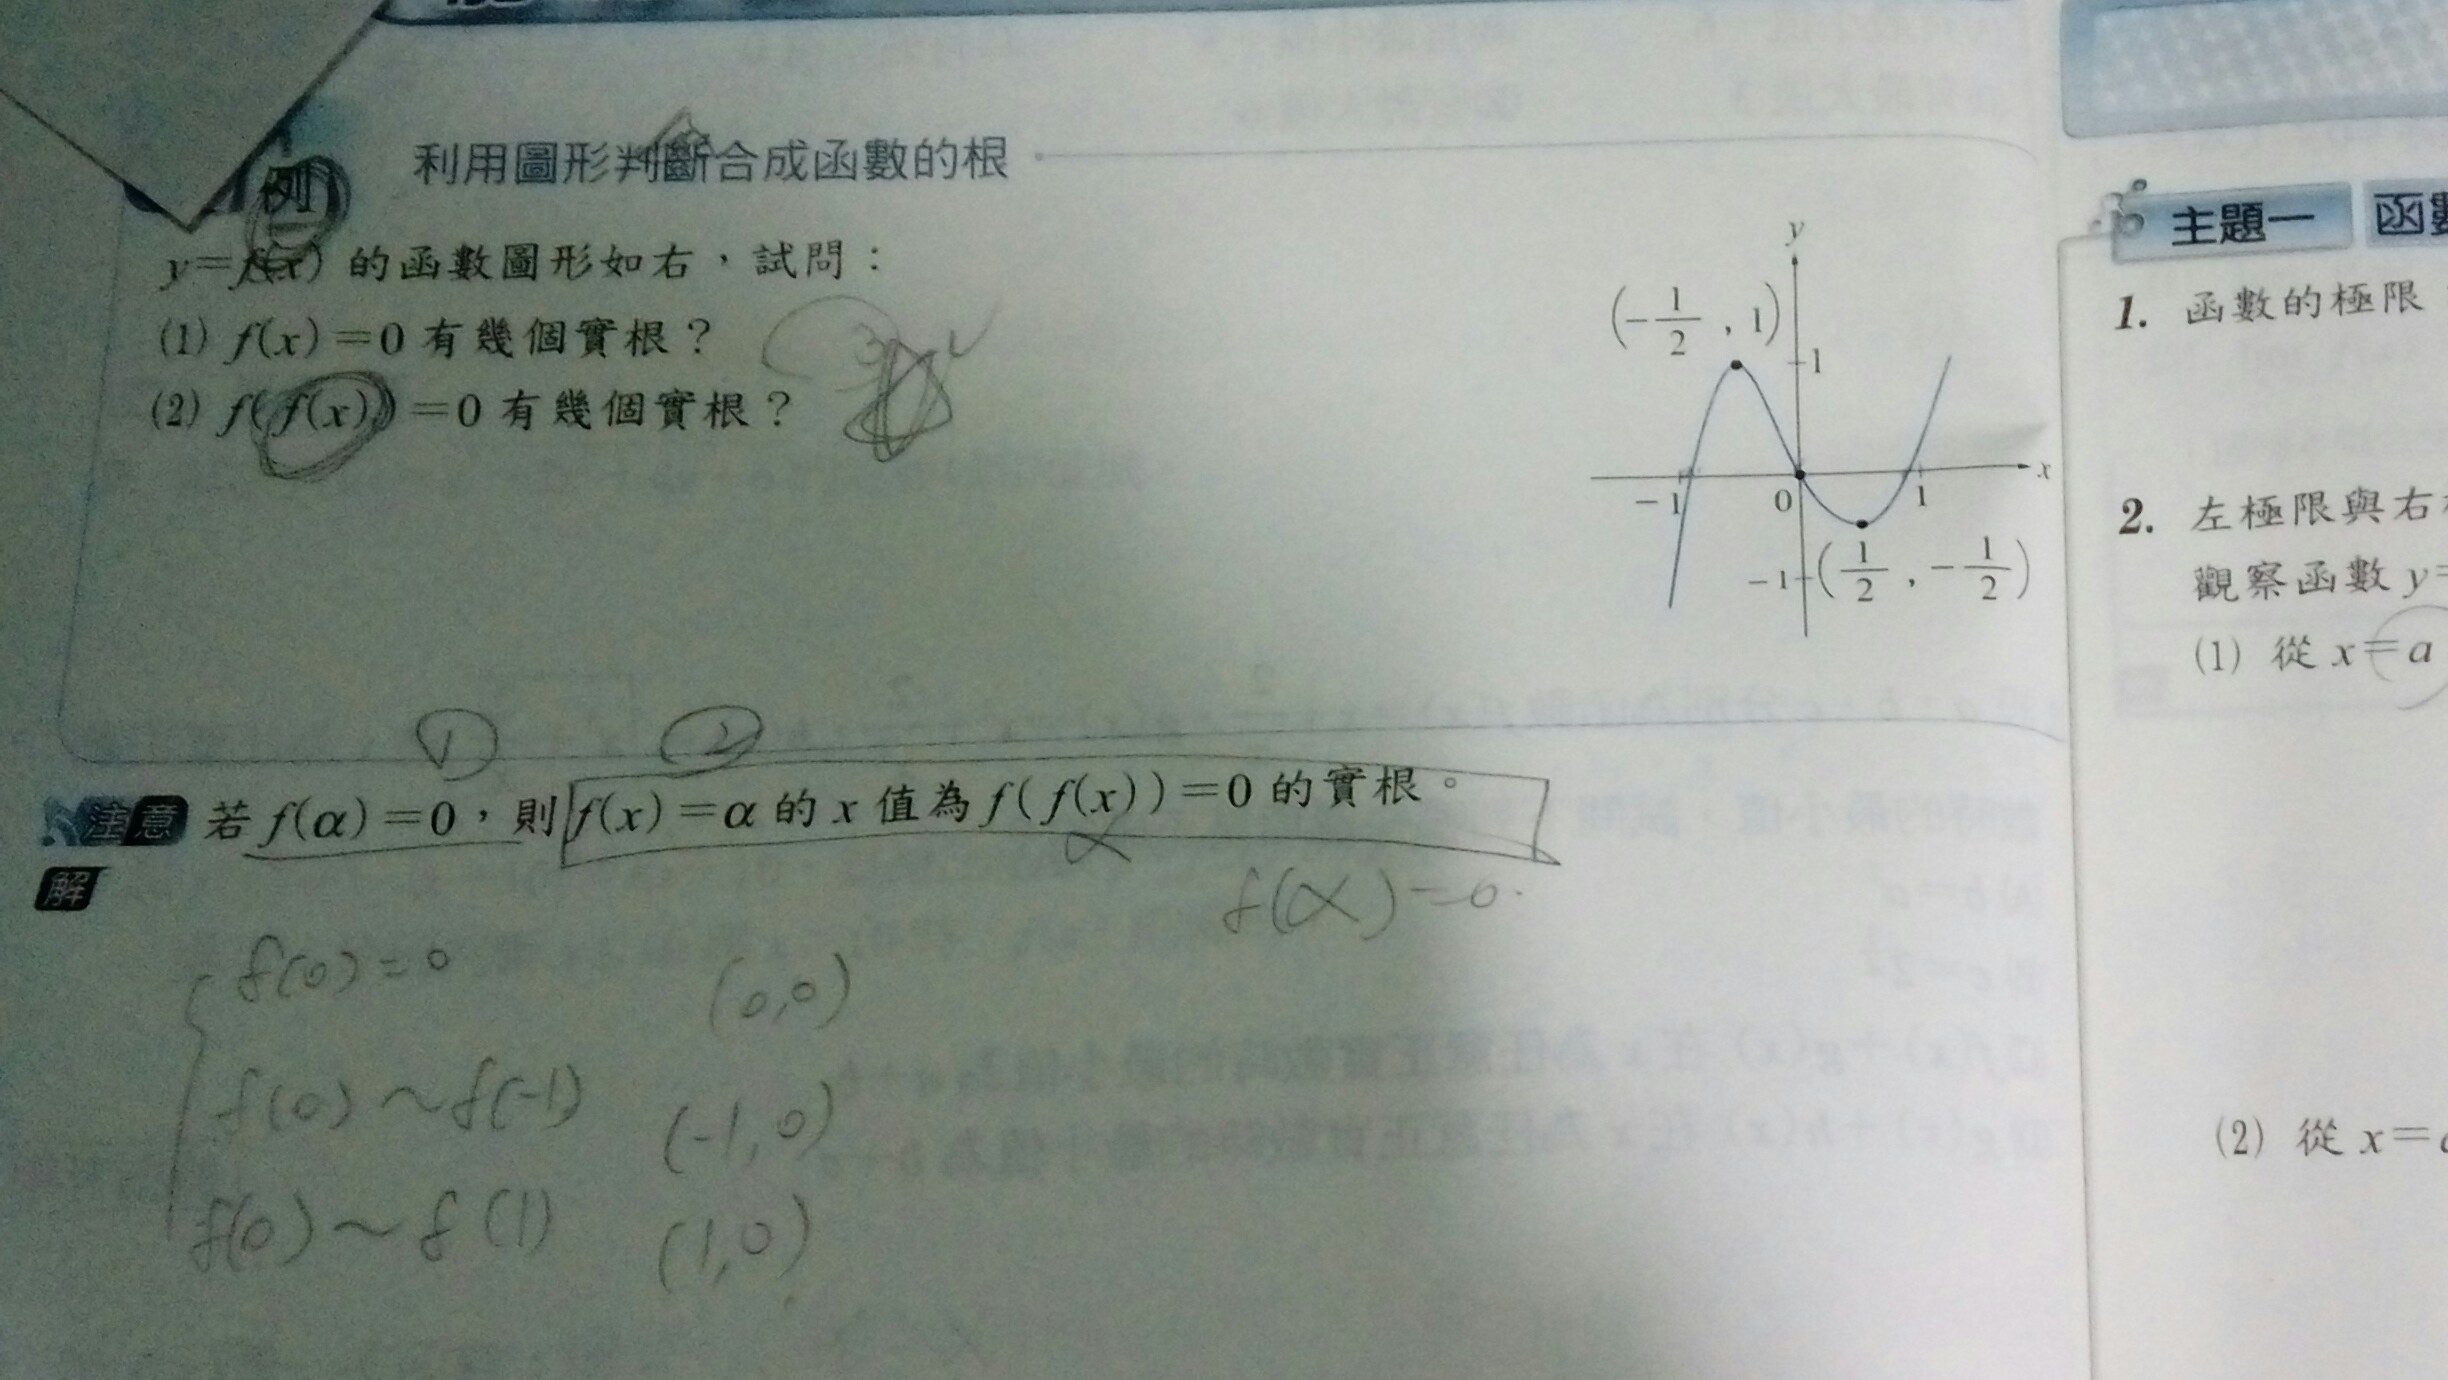 例
利用圖形判斷合成函數的根
y=f(x) 的函數圖形如右，試問：
(1) f(x)=0 有幾個實根？ 3
(2) f(f(x))=0 有幾個實根？
y
(-1/2, 1)
1
-1 0 1 x
-1 (1/2, -1/2)
① ②
注意 若 f(α)=0，則 f(x)=α 的 x 值為 f(f(x))=0 的實根。
α
f(α)=0.
解
f(0)=0 (0,0)
f(0)~f(-1) (-1,0)
f(0)~f(1) (1,0)
主題一 函數
1. 函數的極限
2. 左極限與右
觀察函數 y=
(1) 從 x=a
(2) 從 x=